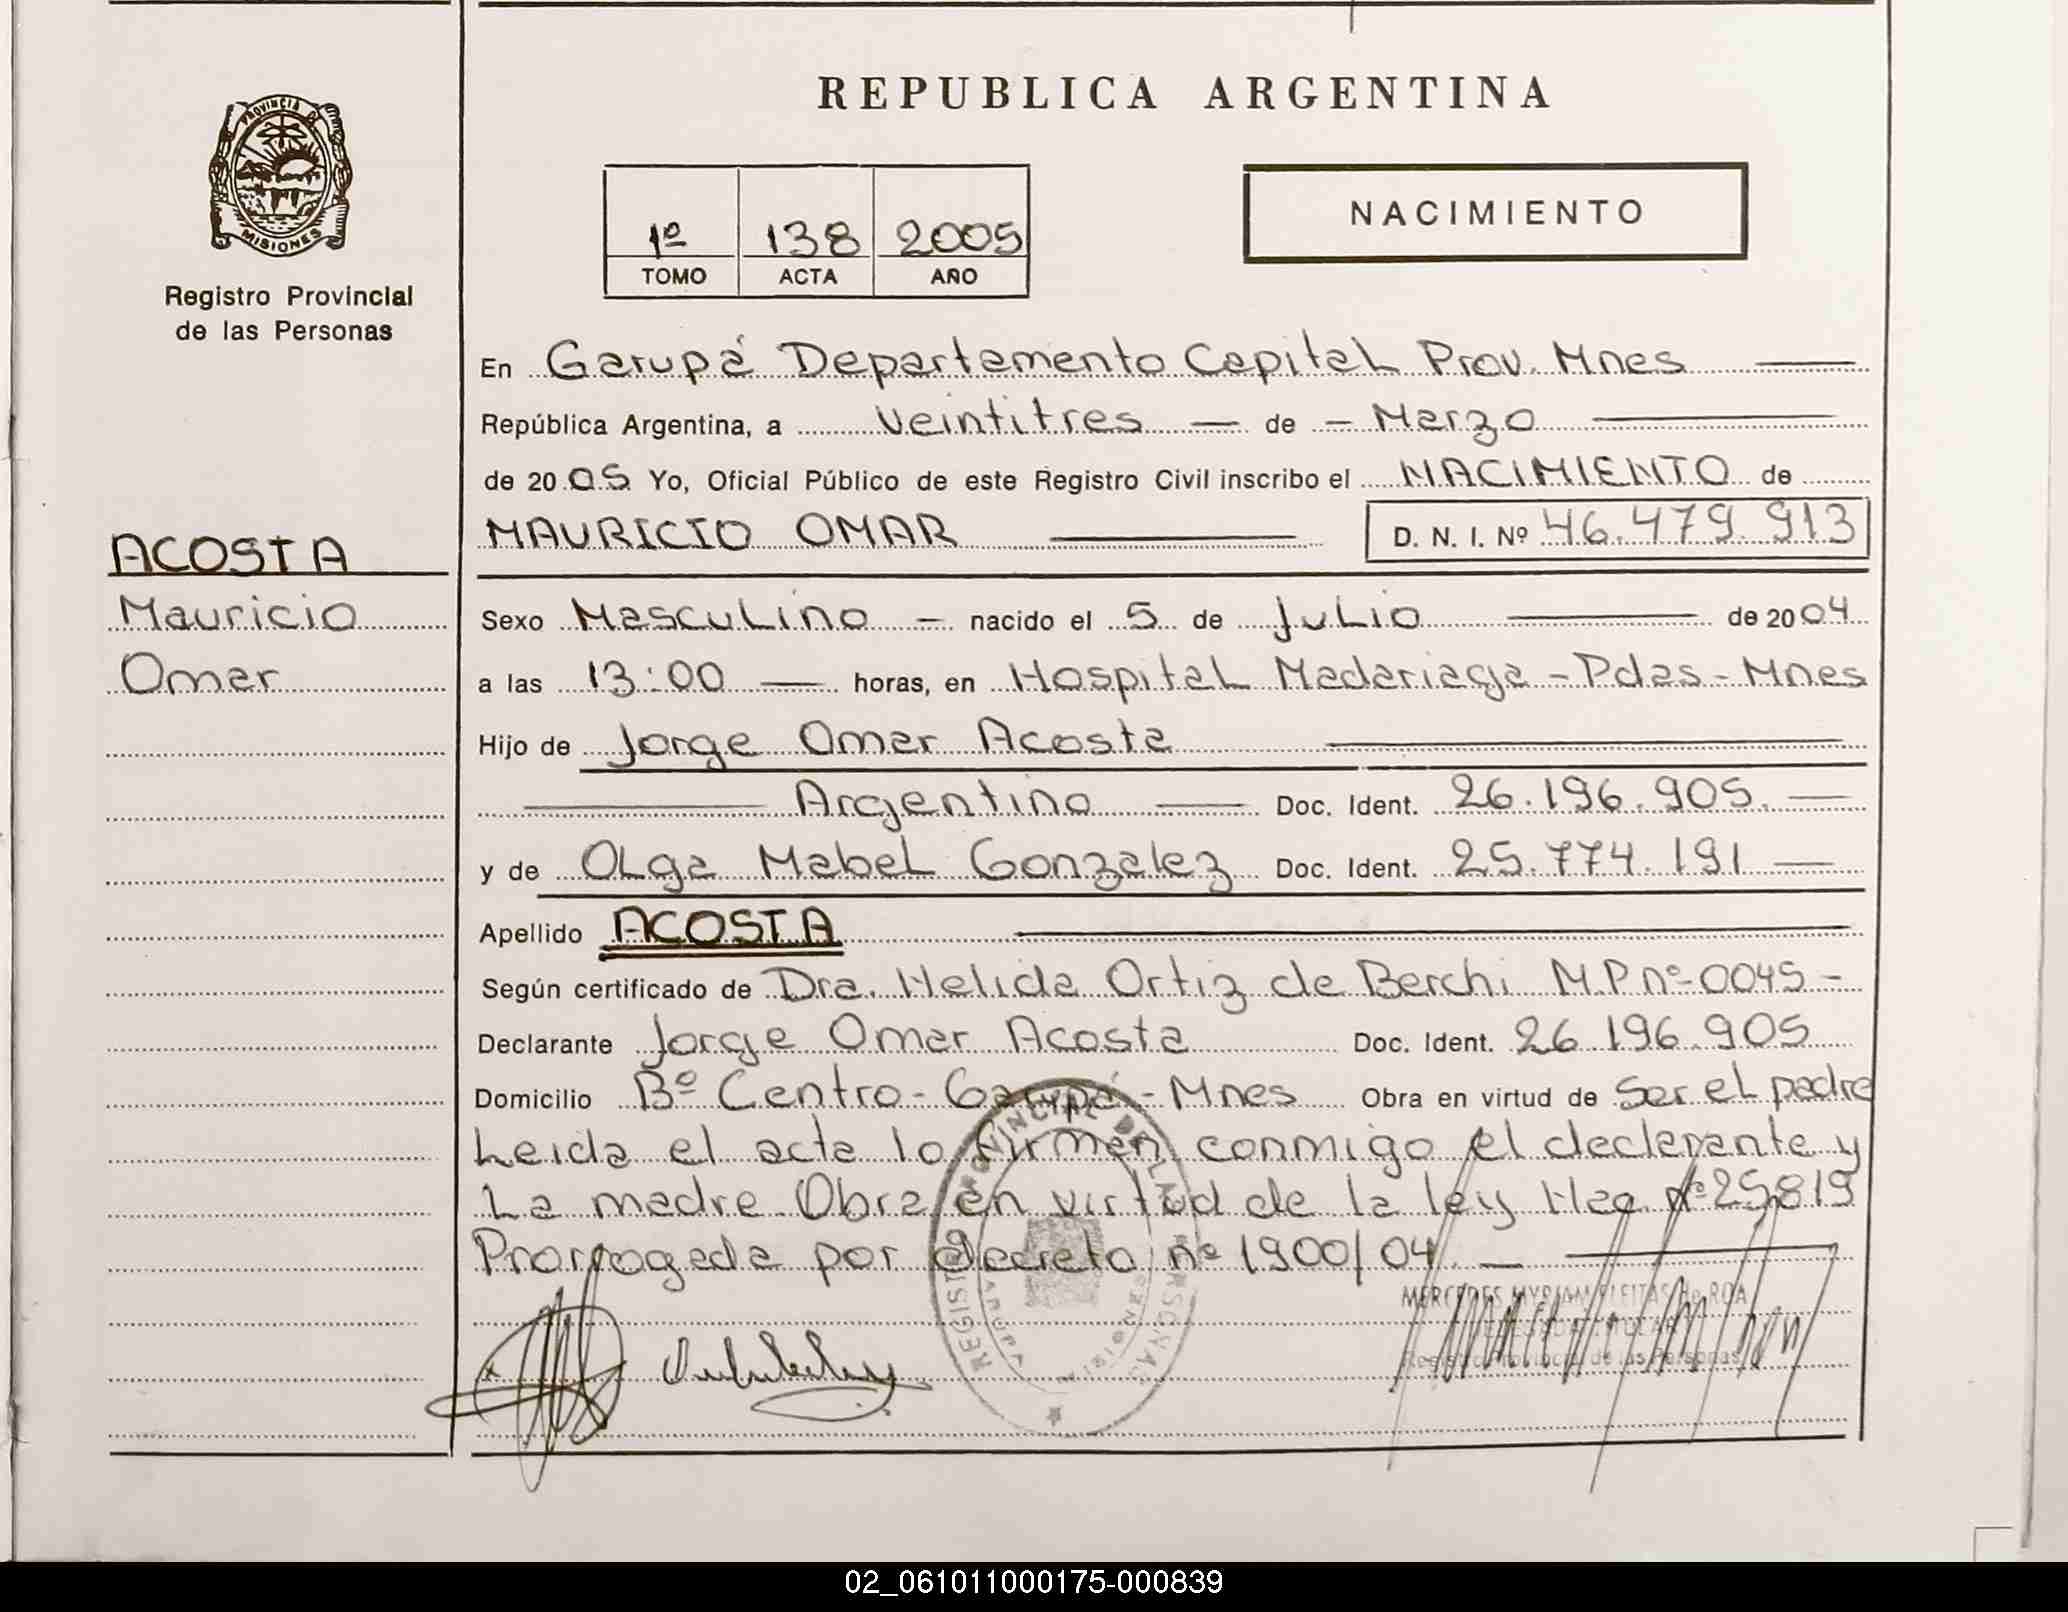 REPUBLICA ARGENTINA
PROVINCIA DE
MISIONES
Registro Provincial
de las Personas
1º 138 2005
TOMO ACTA AÑO
NACIMIENTO
En Garupá Departamento Capital Prov. Mnes
República Argentina, a Veintitres de Marzo
de 2005 Yo, Oficial Público de este Registro Civil inscribo el NACIMIENTO de
MAURICIO OMAR D. N. I. Nº 46.479.913
ACOSTA
Mauricio
Omar
Sexo Masculino nacido el 5 de Julio de 2004
a las 13:00 horas, en Hospital Madariaga - Pdas - Mnes
Hijo de Jorge Omar Acosta
Argentino Doc. Ident. 26.196.905.
y de Olga Mabel Gonzalez Doc. Ident. 25.774.191
Apellido ACOSTA
Según certificado de Dra. Helida Ortiz de Berchi M.P nº 0045 -
Declarante Jorge Omar Acosta Doc. Ident. 26.196.905
Domicilio Bº Centro - Garupá - Mnes Obra en virtud de Ser el padre
Leida el acta lo firman conmigo el declarante y
La madre. Obra en virtud de la ley Nac. nº 25819
Prorrogada por decreto nº 1900/04.
REGISTRO PROVINCIAL DE LAS PERSONAS
GARUPA
MISIONES
MERCEDES MYRIAM FLEITAS de ROA
DELEGADA TITULAR
Registro Provincial de las Personas
02_061011000175-000839